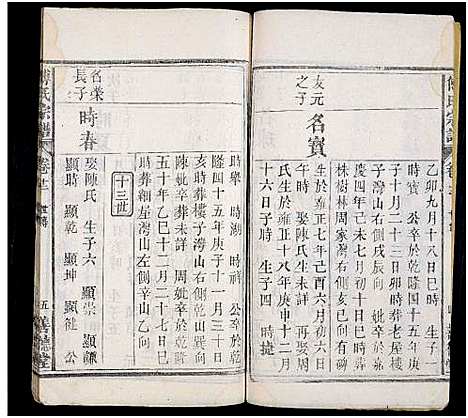 乙卯九月十八日巳時 生子一
時寶 公卒於乾隆四十五年庚
子十月二十三日卯時葬老屋樓
子灣山右側戌辰向 妣卒於嘉
慶四年己未十二月初
株樹林周家灣山右側亥巳向
友元
之子
名寶
生於雍正七年己酉六月
時 娶陳氏生未詳 再娶周
氏生於雍正十八年庚申十二月
十六日子時 生子四 時捷
時舉 時湖 時祥 公卒於乾
隆四十五年庚子十一月三十日
亥時葬樓子灣山右側艮山
陳妣卒葬未詳 周妣卒於乾
五十年乙巳十二月二十七日巳
時葬細垤灣山左側辛山乙向
十三世
名榮
長子
時春
娶陳氏 生子六 顯崇 顯謙
顯時 顯乾 顯坤 顯健 公
傅氏宗譜
卷十二
世傳
五
善德堂
傅氏宗譜